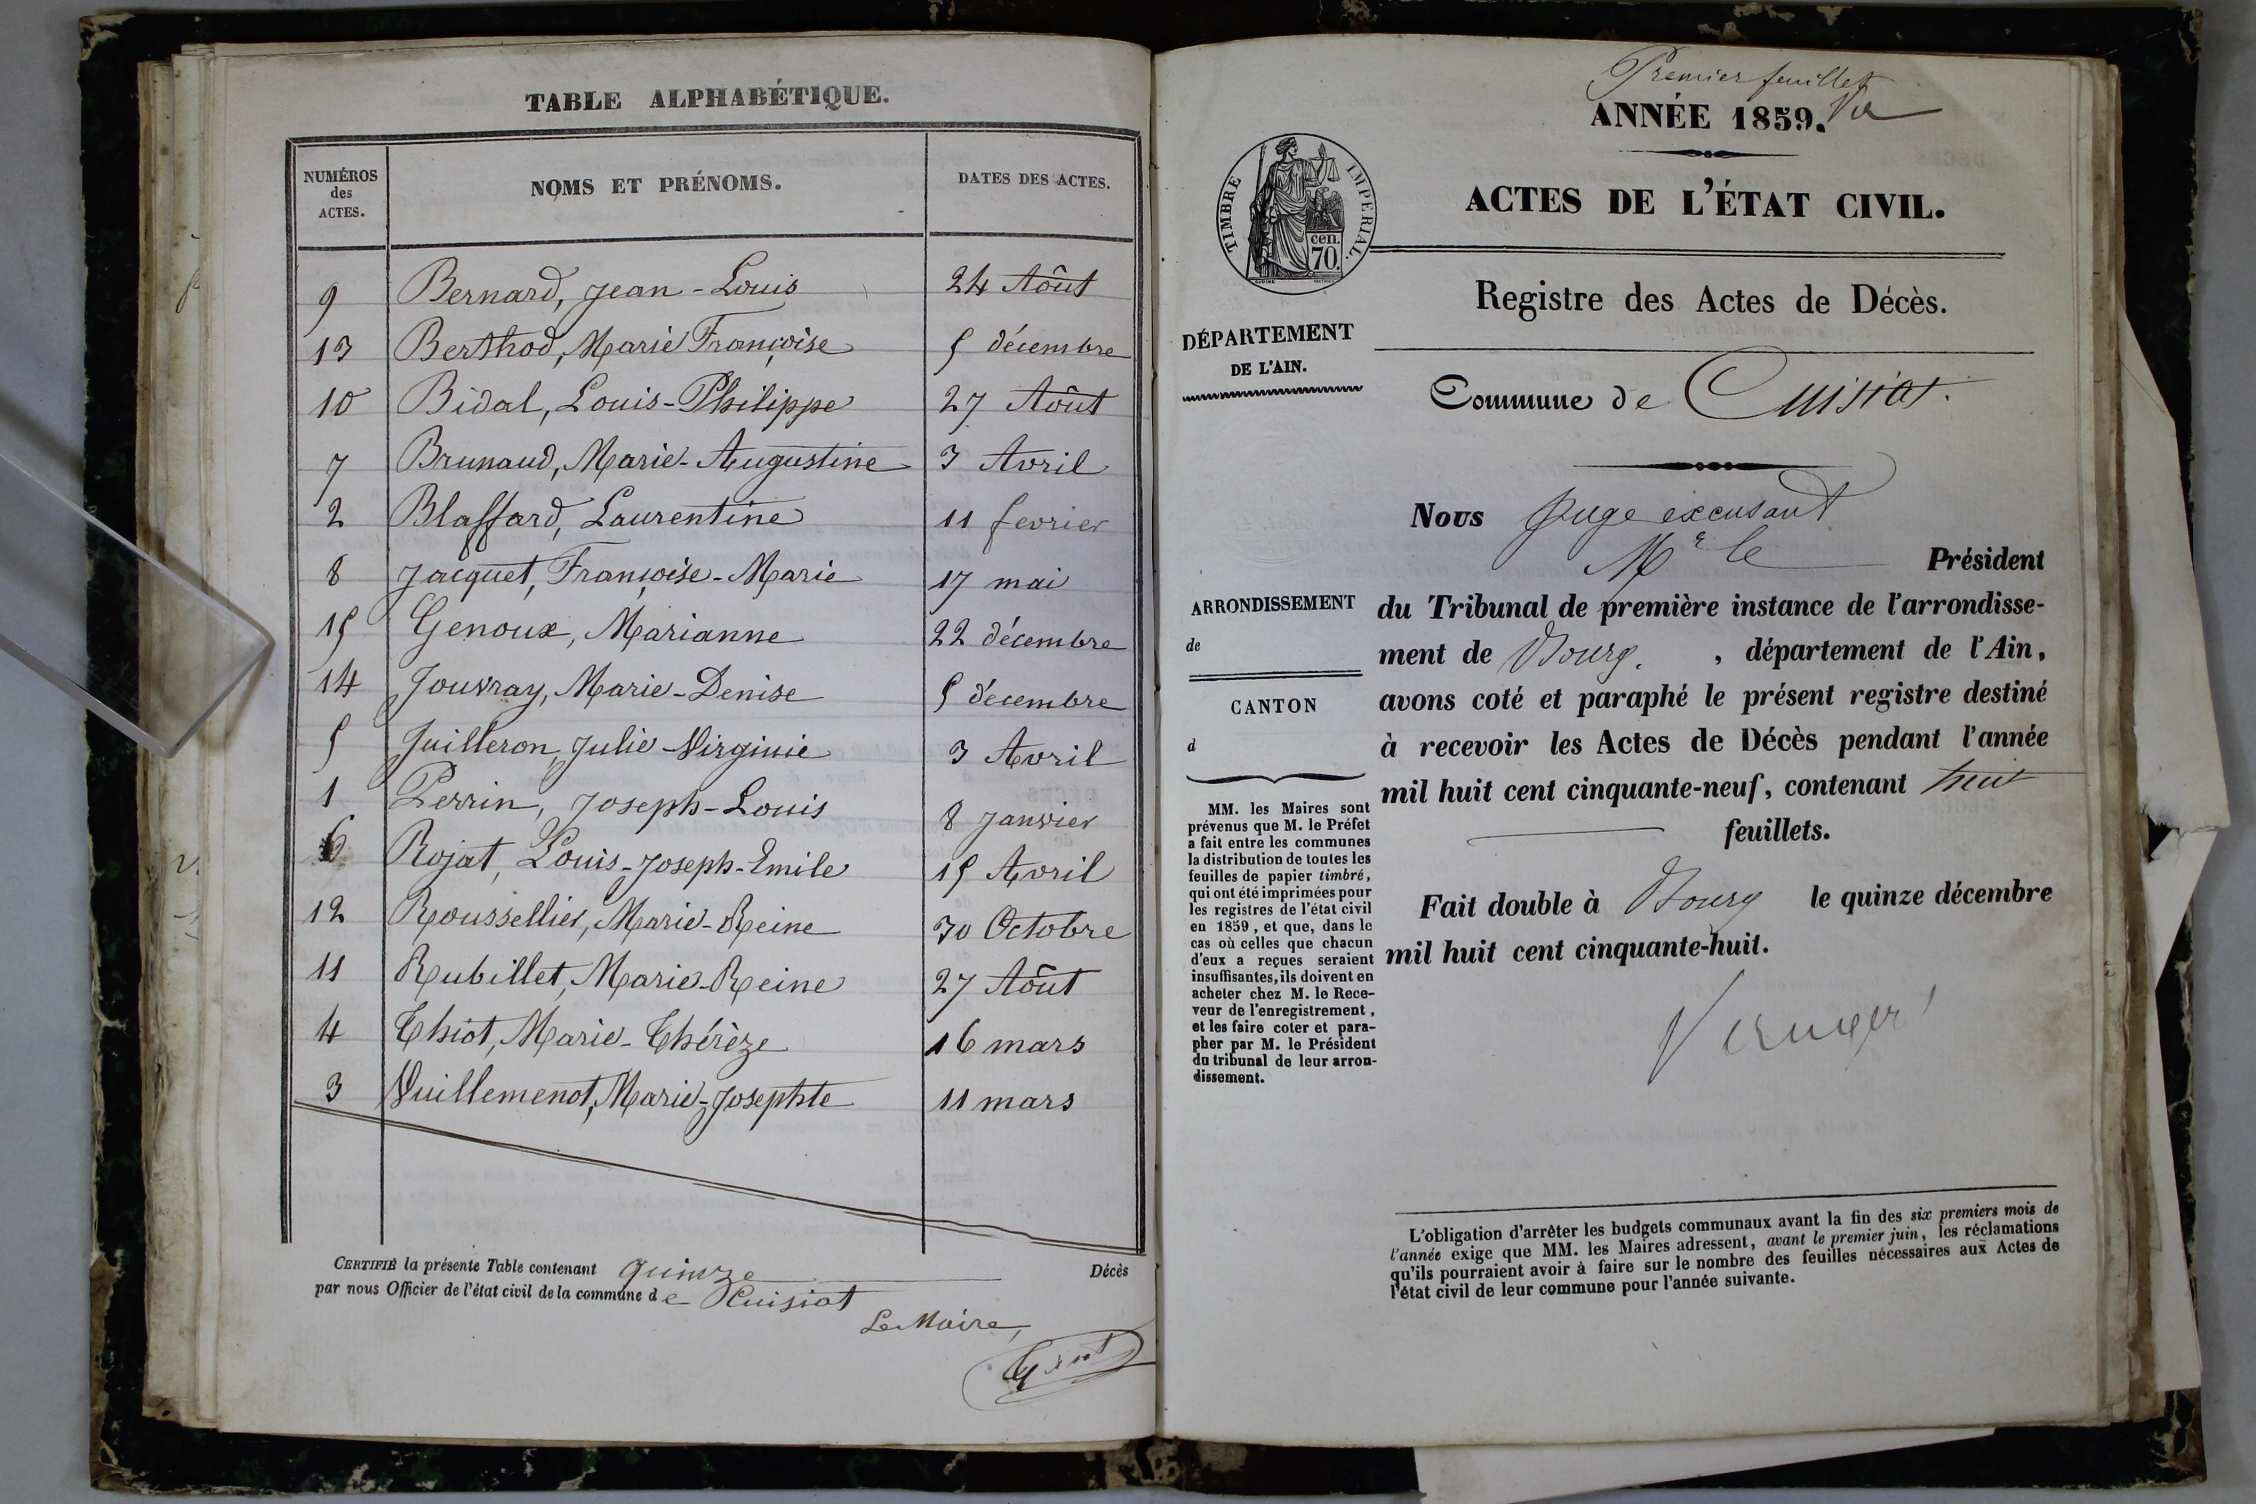 TABLE ALPHABÉTIQUE.
NUMÉROS des ACTES. NOMS ET PRÉNOMS. DATES DES ACTES.
9 Bernard, Jean-Louis 24 Aôut
13 Berthod, Marie Françoise 5 décembre
10 Bidal, Louis-Philippe 27 Aôut
7 Brunaud, Marie-Augustine 3 Avril
2 Blaffard, Laurentine 11 fevrier
8 Jacquet, Françoise-Marie 17 mai
15 Genoux, Marianne 22 décembre
14 Jouvray, Marie-Denise 5 décembre
5 Juilleron, Julie-Virginie 3 Avril
1 Perrin, Joseph-Louis 8 Janvier
6 Rojat, Louis-Joseph-Emile 15 Avril
12 Roussellier, Marie-Reine 30 Octobre
11 Rubillet, Marie-Reine 27 Aôut
4 Thiot, Marie-Thérèze 16 mars
3 Vuillemenot, Marie-Josephte 11 mars
CERTIFIÉ la présente Table contenant quinze Décès
par nous Officier de l'état civil de la commune de Cuisiat
Le Maire,
Premier feuillet
ANNÉE 1859.
TIMBRE IMPÉRIAL.
cen.
70.
ACTES DE L'ÉTAT CIVIL.
Registre des Actes de Décès.
DÉPARTEMENT
DE L'AIN.
Commune de Cuisiat.
Nous Juge excusant
Mr le Président
ARRONDISSEMENT
de
CANTON
d
du Tribunal de première instance de l'arrondisse-
ment de Bourg. , département de l'Ain,
avons coté et paraphé le présent registre destiné
à recevoir les Actes de Décès pendant l'année
mil huit cent cinquante-neuf, contenant huit
feuillets.
Fait double à Bourg le quinze décembre
mil huit cent cinquante-huit.
MM. les Maires sont
prévenus que M. le Préfet
a fait entre les communes
la distribution de toutes les
feuilles de papier timbré,
qui ont été imprimées pour
les registres de l'état civil
en 1859, et que, dans le
cas où celles que chacun
d'eux a reçues seraient
insuffisantes, ils doivent en
acheter chez M. le Rece-
veur de l'enregistrement,
et les faire coter et para-
pher par M. le Président
du tribunal de leur arron-
dissement.
L'obligation d'arrêter les budgets communaux avant la fin des six premiers mois de
l'année exige que MM. les Maires adressent, avant le premier juin, les réclamations
qu'ils pourraient avoir à faire sur le nombre des feuilles nécessaires aux Actes de
l'état civil de leur commune pour l'année suivante.